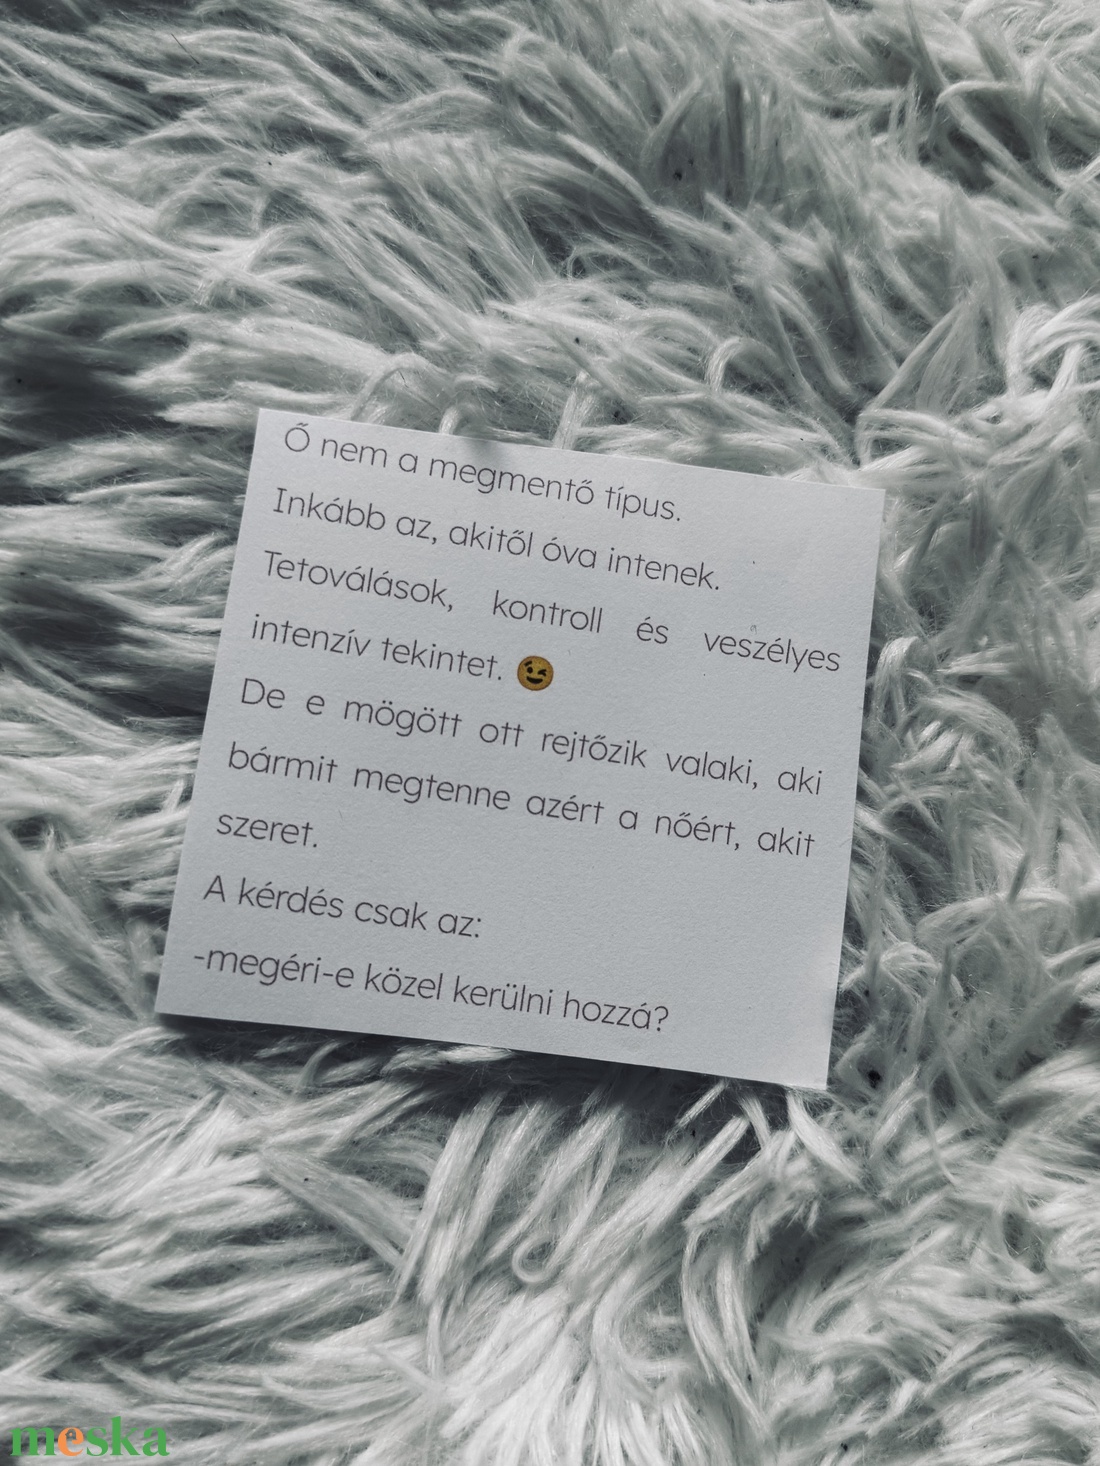 Ő nem a megmentő típus.
Inkább az, akitől óva intenek.
Tetoválások, kontroll és veszélyes
intenzív tekintet. 😉
De e mögött ott rejtőzik valaki, aki
bármit megtenne azért a nőért, akit
szeret.
A kérdés csak az:
-megéri-e közel kerülni hozzá?
meska